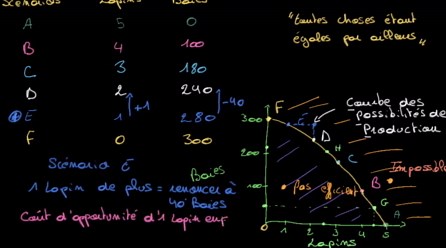 Scénarios Lapins Baies
A 5 0
B 4 100
C 3 180
D 2 240
E 1 280
F 0 300
+1
-40
"toutes choses étant
égales par ailleurs"
Scénario E
1 Lapin de plus = renoncer à
40 Baies
Baies
Coût d'opportunité d'1 Lapin en
F
300
200
100
0
E
D
H
C
B
G
A
Courbe des
possibilités de
Production
Impossible
pas efficient
1 2 3 4 5
Lapins